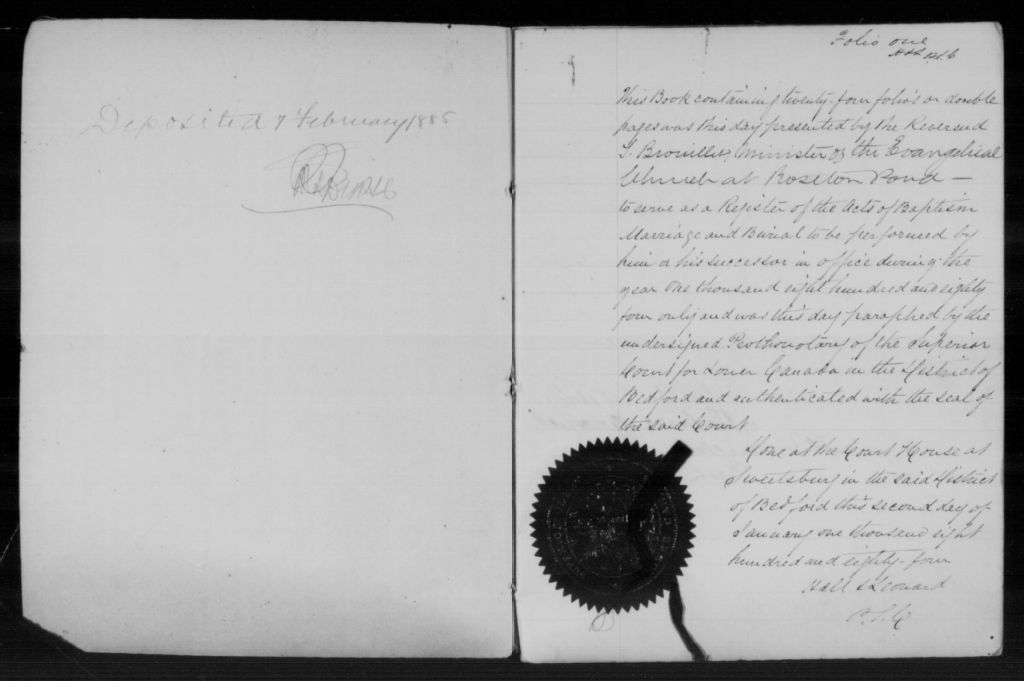 Deposited 7 February 1885
Folio one
This Book containing twenty-four folio's or double
pages was this day presented by the Reverend
Brouillet, Minister of the Evangelical
Church at Roxton Pond —
to serve as a Register of the Acts of Baptism
Marriage and Burial to be performed by
him or his successor in office during the
year one thousand eight hundred and eighty
four only and was this day paraphed by the
undersigned Prothonotary of the Superior
Court for Lower Canada in the District of
Bedford and authenticated with the seal of
the said Court
Done at the Court House at
Sweetsburg in the said District
of Bedford this second day of
January one thousand eight
hundred and eighty-four
Hall & Leonard
P.S.C